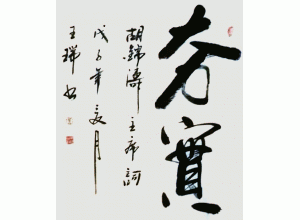 夯實
胡錦濤主席詞
戊子年夏月
王瑞書